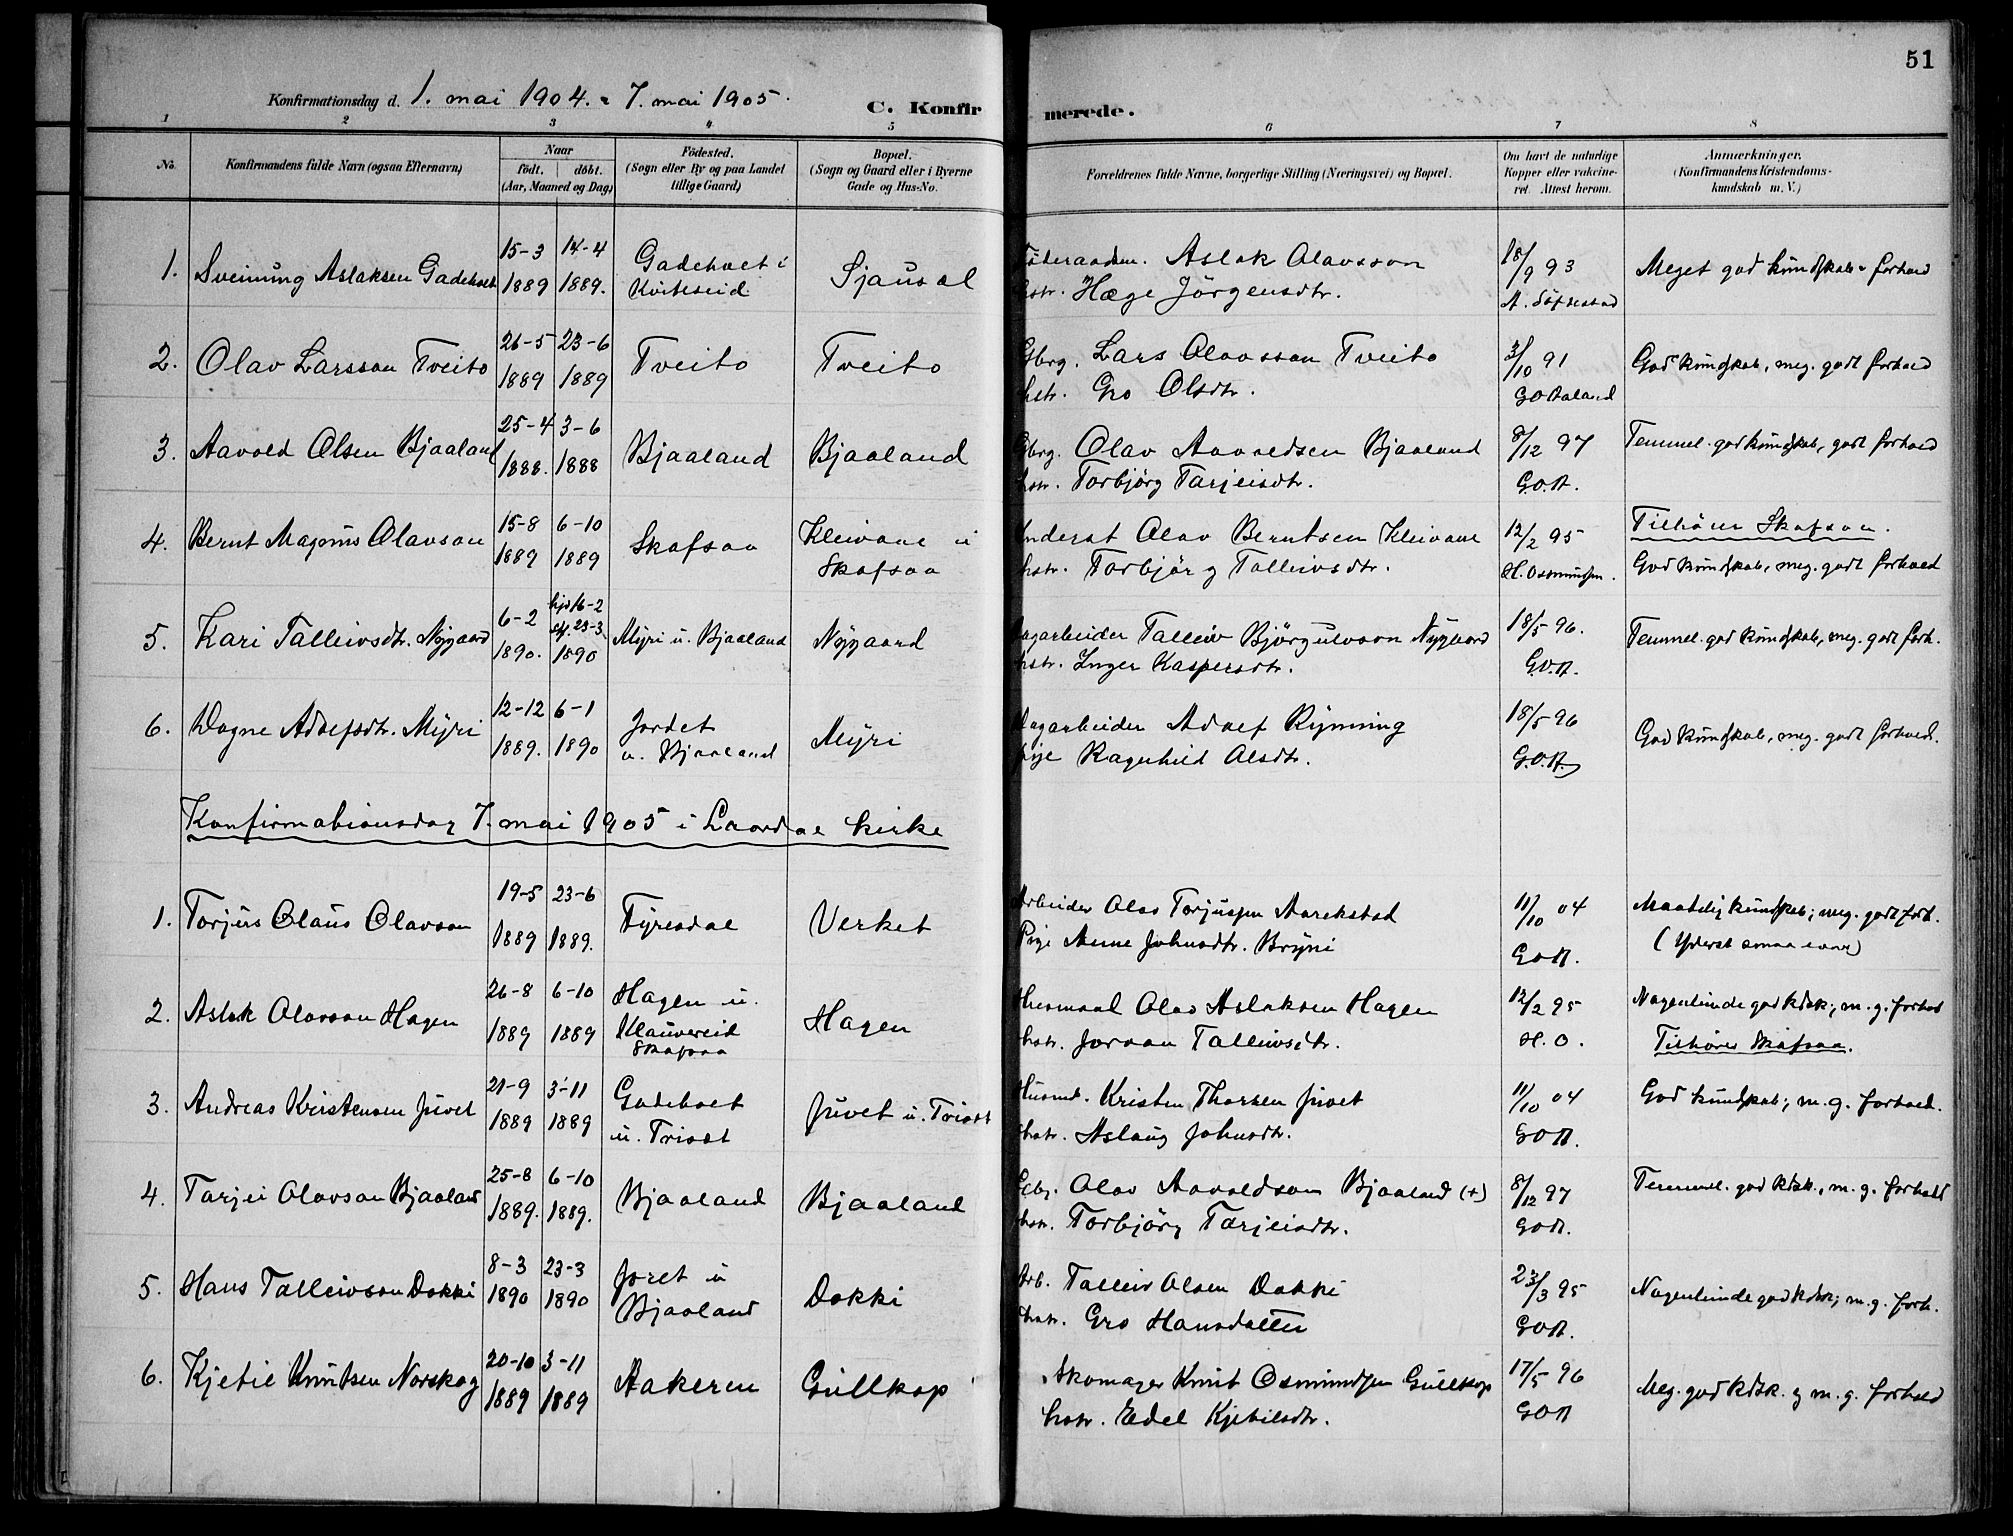 51
Konfirmationsdag d. 1. mai 1904. 7. mai 1905.
C. Konfirmerede.
1 2 3 4 5 6 7 8
No.
Konfirmandens fulde Navn (ogsaa Efternavn)
Naar
født. døbt.
(Aar, Maaned og Dag)
Fødested.
(Sogn eller By og paa Landet
tillige Gaard)
Bopæl.
(Sogn og Gaard eller i Byerne
Gade og Hus-No.
Forældrenes fulde Navne, borgerlige Stilling (Næringsvei) og Bopæl.
Om havt de naturlige
Kopper eller vakcine-
ret. Attest herom.
Anmærkninger.
(Konfirmandens Kristendoms-
kundskab m. V.)
1. Sveinung Aslaksen Gadeholt 15-3 1889 14-4 1889. Gadeholt i Hviteseid Sjausæl
Aslak Olavsson
hstr. Hæge Jörgensdtr.
18/9 93
Meget god kundskab forhold
2. Olav Larsson Tveito 26-5 1889 23-6 1889 Tveito Tveito
Gbrg. Lars Olavsson Tveito
hstr. Gro Olsdtr.
3/10 91
G O Aaland
God kundskab, meg. godt forhold
3. Aavold Olsen Bjaaland 25-4 1888. 3-6 1888 Bjaaland Bjaaland
Gbrg. Olav Aavoldsen Bjaaland
hstr. Torbjörg Tarjeisdtr.
8/12 97
G.O.A.
Temmel. god kundskab, godt forhold
4. Bernt Magnus Olavson 15-8 1889 6-10 1889 Skafsaa Kleivane i Skafsaa
Inderst Olav Berntsen Kleivane
hstr. Torbjörg Talleivsdtr.
12/2 95
H. Osmundsen.
Tilhörer Skafsaa.
God kundskab, meg. godt forhold
5. Kari Talleivsdtr. Nygaard 6-2 1890. hjd 16-2 23-3 1890 Myri u. Bjaaland Nygaard
Dagarbeider Talleiv Björgulvson Nygaard
hstr. Inger Kaspersdtr.
18/5 96.
G.O.A.
Temmel. god kundskab, meg. godt forh.
6. Dagne Adolfsdtr. Myri 12-12 1889. 6-1 1890 Jordet u. Bjaaland Myri
Dagarbeider Adolf Rynning
pige Ragnhild Olsdtr.
18/5 96
G.O.A.
God kundskab, meg. godt forhold.
Konfirmationsdag 7. mai 1905 i Laardal kirke
1. Torjus Olaus Olavson 19-5 1889 23-6 1889. Fyresdal Verket
Arbeider Olav Torjussen Aarekstad
Pige Anne Johnsdtr. Bryni
11/10 04
G O A.
Maadelig kundskab; meg. godt forh.
(Yderst smaa evner)
2. Aslak Olavson Hagen 26-8 1889 6-10 1889 Hagen u. Klauvreid Skafsaa Hagen
Olav Aslaksen Hagen
hstr. Joraan Talleivsdtr.
12/2 95
H. O.
Nogenlunde god kdsk; m. g. forhold
Tilhörer Skafsaa.
3. Andreas Kristensen Juvet 21-9 1889 3-11 1889 Gadeholt u. Trisæt Juvet u. Trisæt
Husmd. Kristen Thorsen Juvet
hstr. Aslaug Johnsdtr.
11/10 04
G O A.
God kundskab; m. g. forhold.
4. Tarjei Olavson Bjaaland 25-8 1889. 6-10 1889. Bjaaland Bjaaland
Gbr. Olav Aavoldson Bjaaland (+)
hstr. Torbjörg Tarjeisdtr.
8/12 97
G O A.
Temmel. god kdsk., m. g. forhold
5. Hans Talleivson Dokki 8-3 1890 23-3 1890 Joret u Bjaaland Dokki
Arb. Talleiv Olsen Dokki
hstr. Gro Hansdatter
23/3 95
G O A.
Nogenlunde god kdsk; m. g. forh.
6. Kjetil Knutsen Norskog 20-10 1889 3-11 1889 Aakeren Gullkop
Skomager Knut Osmundsen Gullkop
hstr. Edel Kjetilsdtr.
17/5 96
G O A
Meg. god kdsk. og m. g. forhold